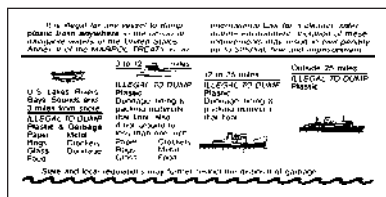 It is illegal for any vessel to dump
plastic trash anywhere in the ocean or
navigable waters of the United States.
Annex V of the MARPOL TREATY is an
International Law for a cleaner, safer
marine environment. Violation of these
requirements may result in civil penalty
up to $25,000, fine, and imprisonment.
U.S. Lakes, Rivers,
Bays, Sounds and
3 miles from shore
ILLEGAL TO DUMP
Plastic & Garbage
Paper Metal
Rags Crockery
Glass Dunnage
Food
3 to 12 miles
ILLEGAL TO DUMP
Plastic
Dunnage, lining &
packing materials
that float, also
if not ground to
less than one inch:
Paper Crockery
Rags Metal
Glass Food
12 to 25 miles
ILLEGAL TO DUMP
Plastic
Dunnage, lining &
packing materials
that float
Outside 25 miles
ILLEGAL TO DUMP
Plastic
State and local regulations may further restrict the disposal of garbage